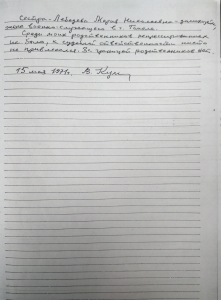 Сестра - Лебедева Мария Николаевна - домохоз.,
жена военнослужащего в г. Тбилиси.
Среди моих родственников репрессированных
не было, к судебной ответственности никто
не привлекался. За границей родственников нет.
15 мая 1971г. В. Кун